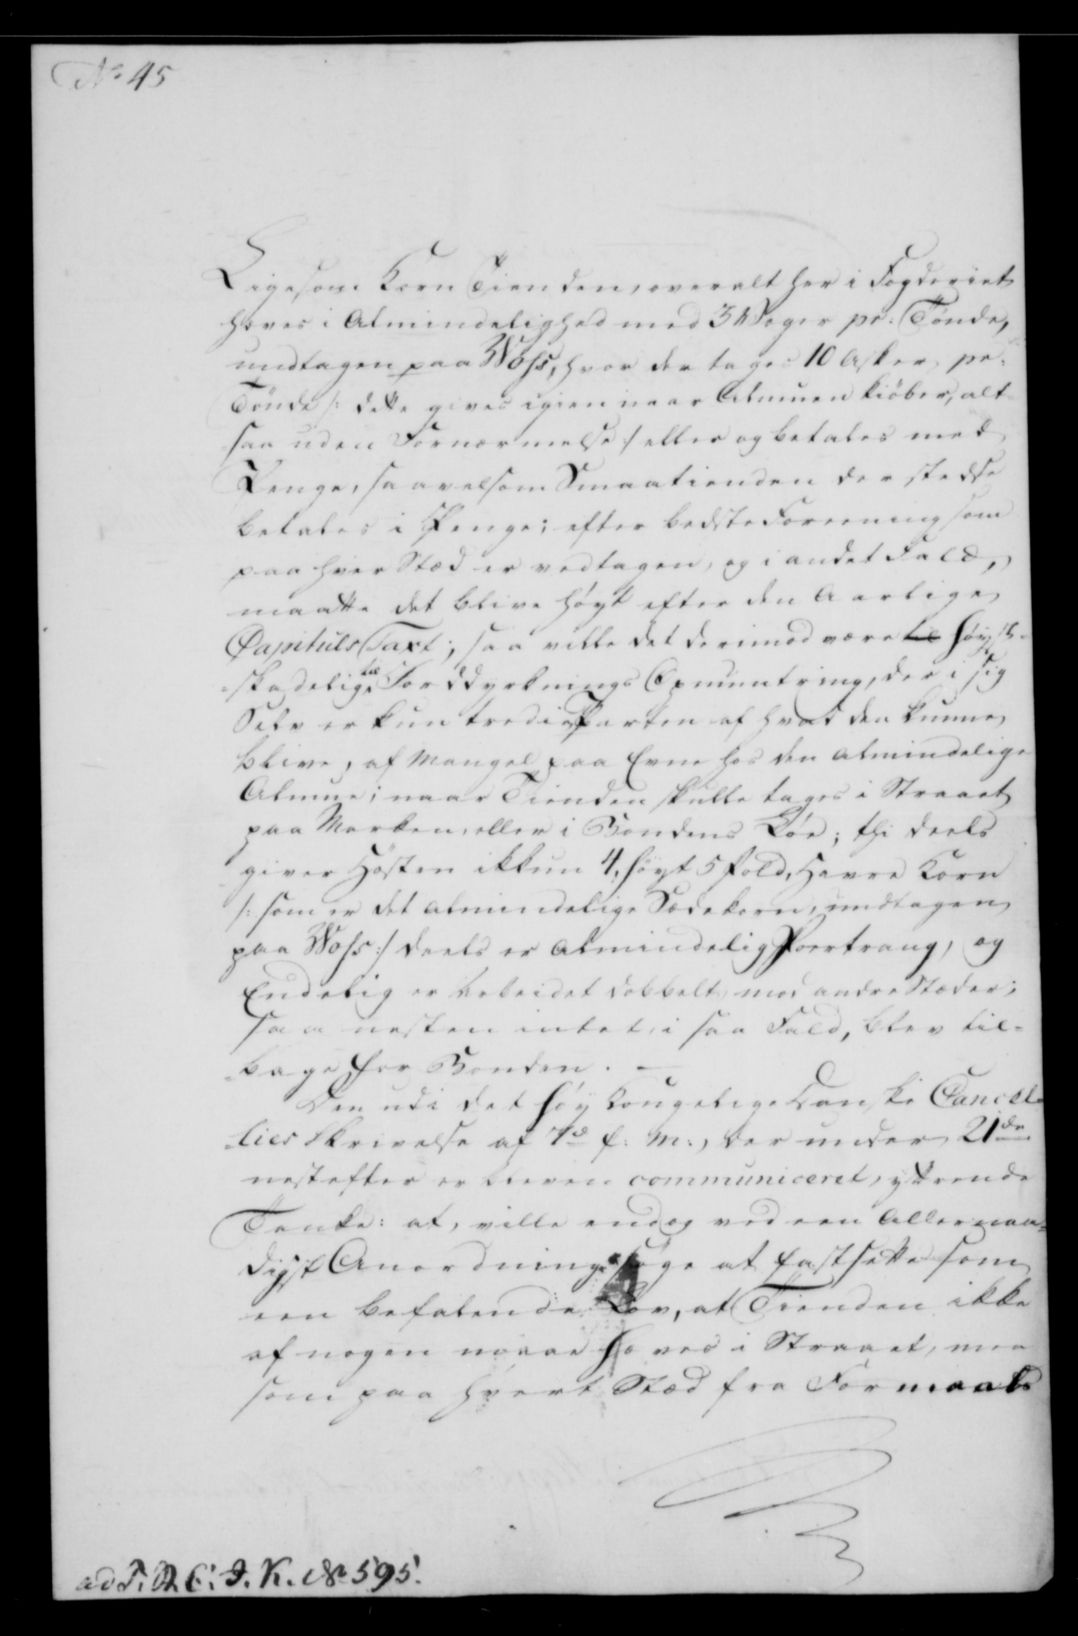 No 45
Ligesom Korn Tienden, overalt her i Fogderiet
hæves i Almindelighed med 3 Woger pr: Tønde,
undtagen paa Woss, hvor der tages 10 Asker pr:
Tönde /: dette gives igien naar Almuen kiöber, alt-
saa uden Fornærmelse :/ eller og betales med
Penge, saavelsom Smaatienden der stedse
betales i Penge; efter bedste Foreening som
paa hver Stæd er vedtagen, og i andet Fald,
maatte det blive høyt efter den Aarlige
Capituls Taxt; saa ville det derimod være høyst-
skadelig til Jorddyrknings Opmuntring, der i sig
Selv er kun tredie Parten af hvad den kunne
blive, af Mangel paa Evne hos den almindelige
Almue; naar Tienden skulle tages i Straaet
paa Marken, eller i Bondens Löe; thi deels
giver Hösten ikkun 4, høyt 5 fold, Havre Korn
/: som er det almindelige Sædekorn, undtagen
paa Woss :/ deels er Almindelig Foertrang, og
Endelig er Arbeidet dobbelt mod andre Stæder;
saa nesten intet, i saa Fald, blev til-
bage for Bonden. —
Den udi det høy Kongelige Danske Cancel-
lies Skrivelse af 7d f: M:, der under 21de
nestefter er bleven communiceret, yttrende
Tanke: at, ville endog ved een Allernaa-
digst Anordning søge at fastsette som
een befalende Lov, at Tienden ikke
af nogen maae hæves i Straaet, men
som paa hvert Stæd fra Formaals
ad T. D. C. J. K. No 595.